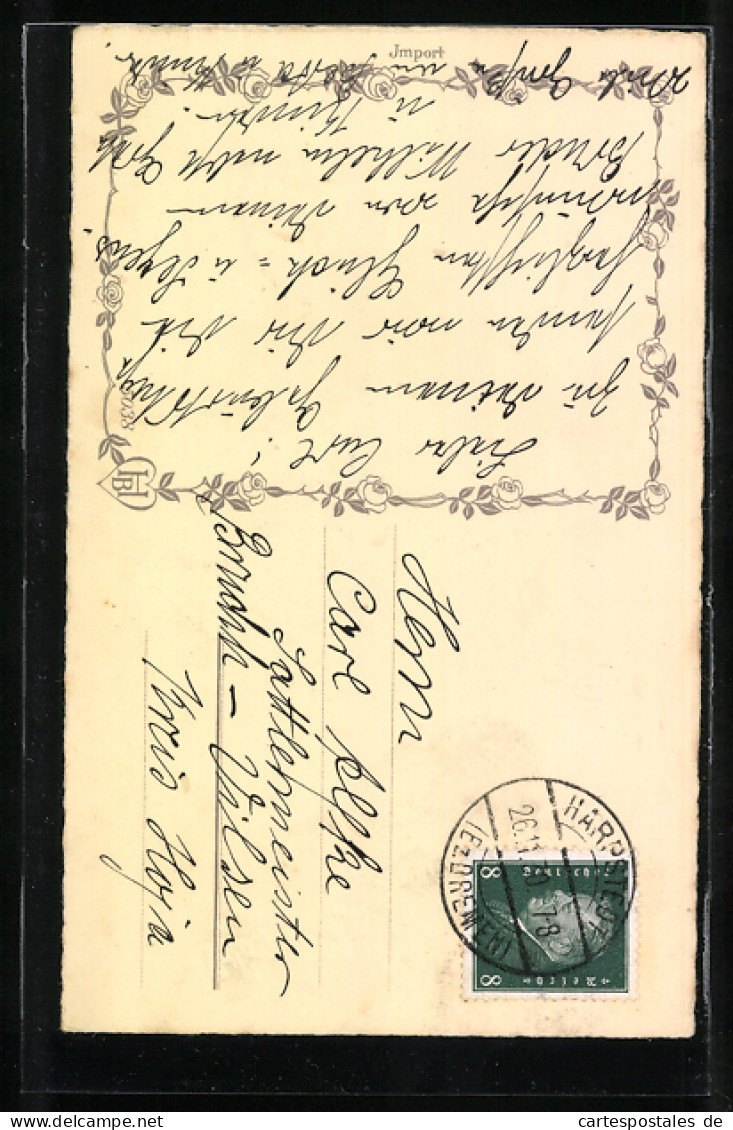 Jmport
Lieber Curt!
Zu Deinem Geburtstage
senden wir Dir die
herzlichsten Glück- u Segens-
wünsche von Deinem
Bruder Wilhelm nebst Frau
u Kinder.
Viele Grüße an
HB
Herrn
Carl
Sattlermeister
Bruchh-Vilsen
Kreis Hoya
HARPSTEDT
(BZ. BREMEN)
26.11. 30. 7-8
Deutsches
Reich
8
8
cartespostales de
delcampe.net